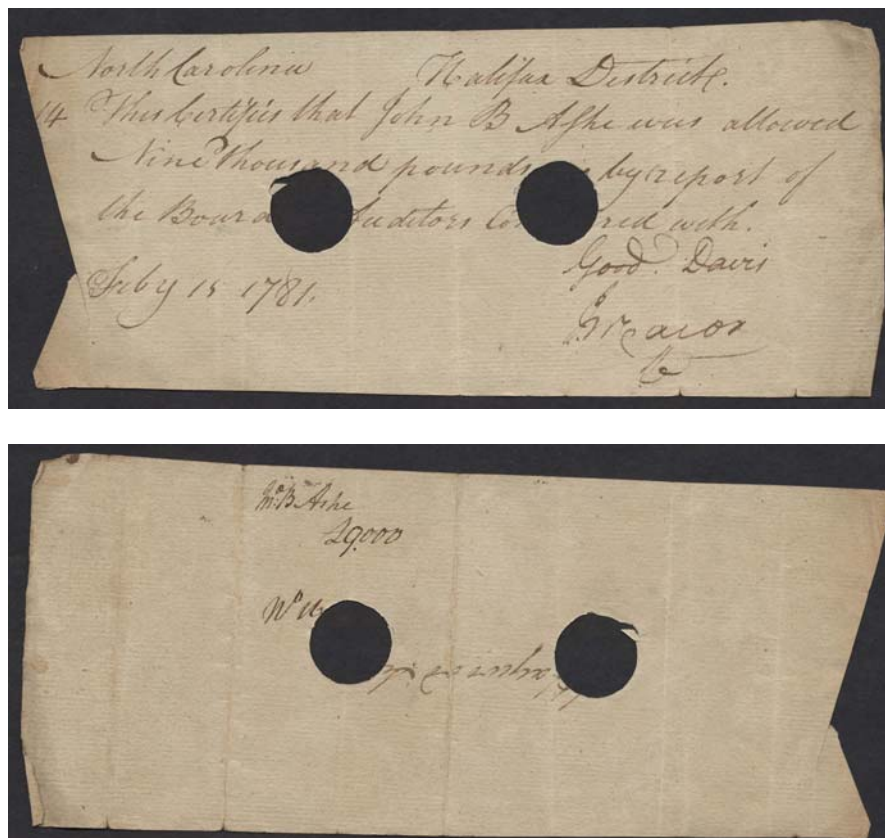 North Carolina Halifax District.
14 This Certifies that John B Ashe was allowed
Nine thousand pounds by report of
the Board Auditors Com red with.
Good. Davis
Feby 15 1781.
Jno. B Ashe
£9000